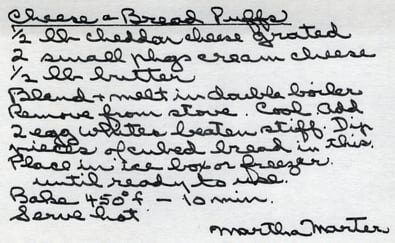 Cheese & Bread Puffs
½ lb cheddar cheese grated
2 small phgs cream cheese
½ lb butter
Blend + melt in double boiler
Remove from stove. Cool add
2 egg whites beaten stiff. Dip
pieces of cubed bread in this.
Place in ice box or freezer.
until ready to use.
Bake 450°f - 10 min.
Serve hot
Martha Marter